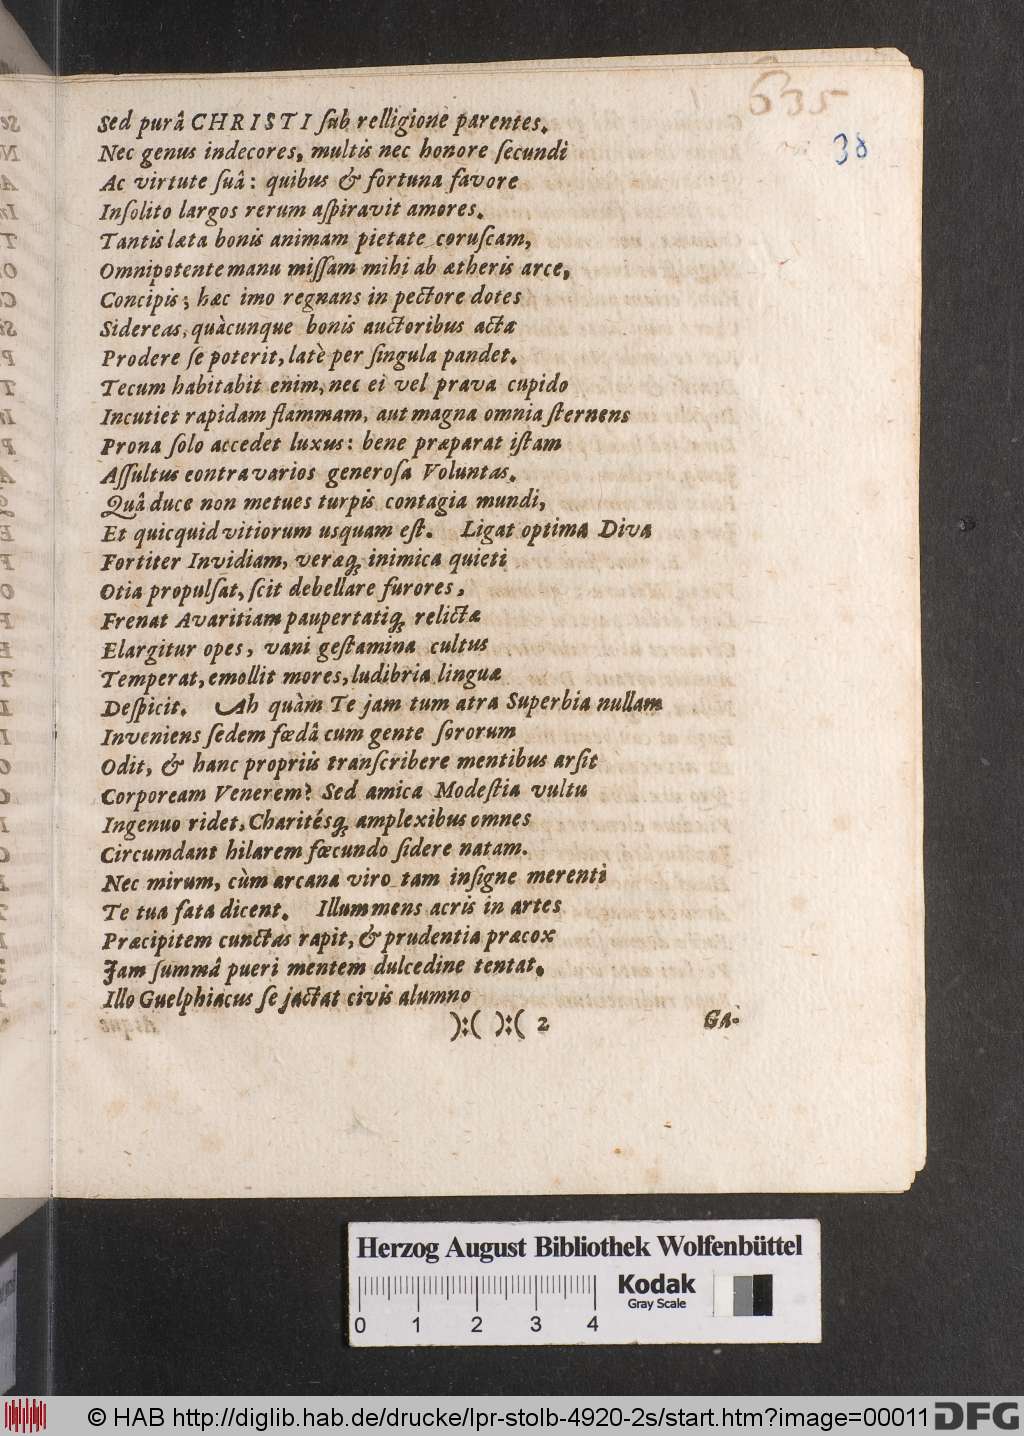 635
38
Sed purâ CHRISTI ſub relligione parentes.
Nec genus indecores, multis nec honore ſecundi
Ac virtute ſuâ: quibus & fortuna favore
Inſolito largos rerum aſpiravit amores.
Tantis læta bonis animam pietate coruſcam,
Omnipotente manu miſſam mihi ab ætheris arce,
Concipis; hæc imo regnans in pectore dotes
Sidereas, quàcunque bonis auctoribus actæ
Prodere ſe poterit, latè per ſingula pandet.
Tecum habitabit enim, nec ei vel prava cupido
Incutiet rapidam flammam, aut magna omnia ſternens
Prona ſolo accedet luxus: bene præparat iſtam
Aſſultus contra varios generoſa Voluntas.
Quâ duce non metues turpis contagia mundi,
Et quicquid vitiorum usquam eſt. Ligat optima Diva
Fortiter Invidiam, veræq; inimica quieti
Otia propulſat, ſcit debellare furores,
Frenat Avaritiam paupertatiq; relictæ
Elargitur opes, vani geſtamina cultus
Temperat, emollit mores, ludibria linguæ
Deſpicit. Ah quàm Te jam tum atra Superbia nullam
Inveniens ſedem fœdâ cum gente ſororum
Odit, & hanc propriis tranſcribere mentibus arſit
Corpoream Venerem? Sed amica Modeſtia vultu
Ingenuo ridet, Charitésq; amplexibus omnes
Circumdant hilarem fœcundo ſidere natam.
Nec mirum, cùm arcana viro tam inſigne merenti
Te tua fata dicent. Illum mens acris in artes
Præcipitem cunctas rapit, & prudentia præcox
Jam ſummâ pueri mentem dulcedine tentat.
Illo Guelphiacus ſe jactat civis alumno
):( ):( 2 Ga-
Herzog August Bibliothek Wolfenbüttel
Kodak
Gray Scale
0 1 2 3 4
© HAB http://diglib.hab.de/drucke/lpr-stolb-4920-2s/start.htm?image=00011
DFG